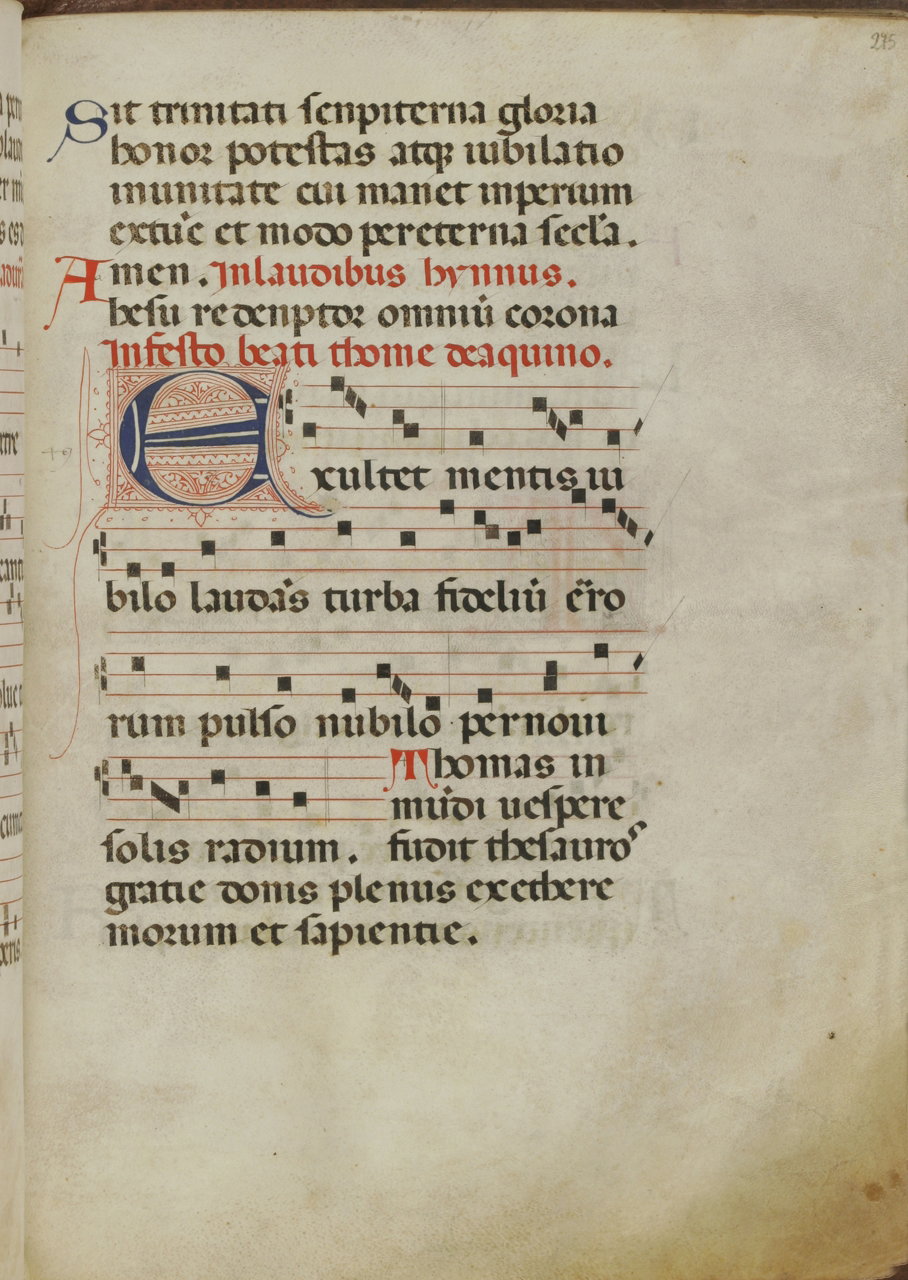 275
Sit trinitati senpiterna gloria
honor potestas atqꝫ iubilatio
inunitate cui manet inperium
extūc et modo pereterna secl̄a.
Amen. Inlaudibus hynnus.
hesu redenptor omniū corona
Infesto beati thome deaquino.
Exultet mentis iu
bilo laudās turba fideliū ērro
rum pulso nubilo pernoui
solis radium. Thomas in
mūdi uespere
fudit thesauros
gratie donis plenus exethere
morum et sapientie.